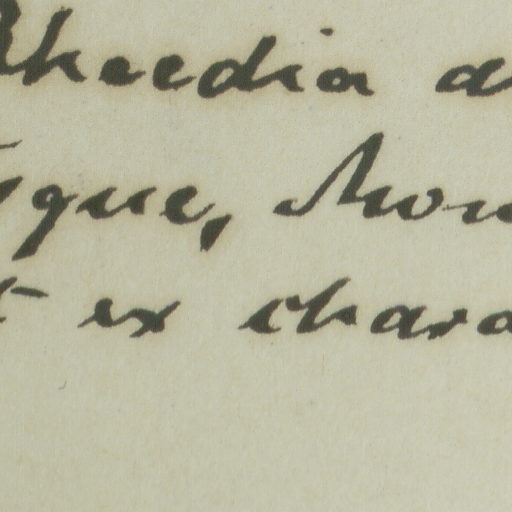 Rheedia a
que, Mon
t ex chara